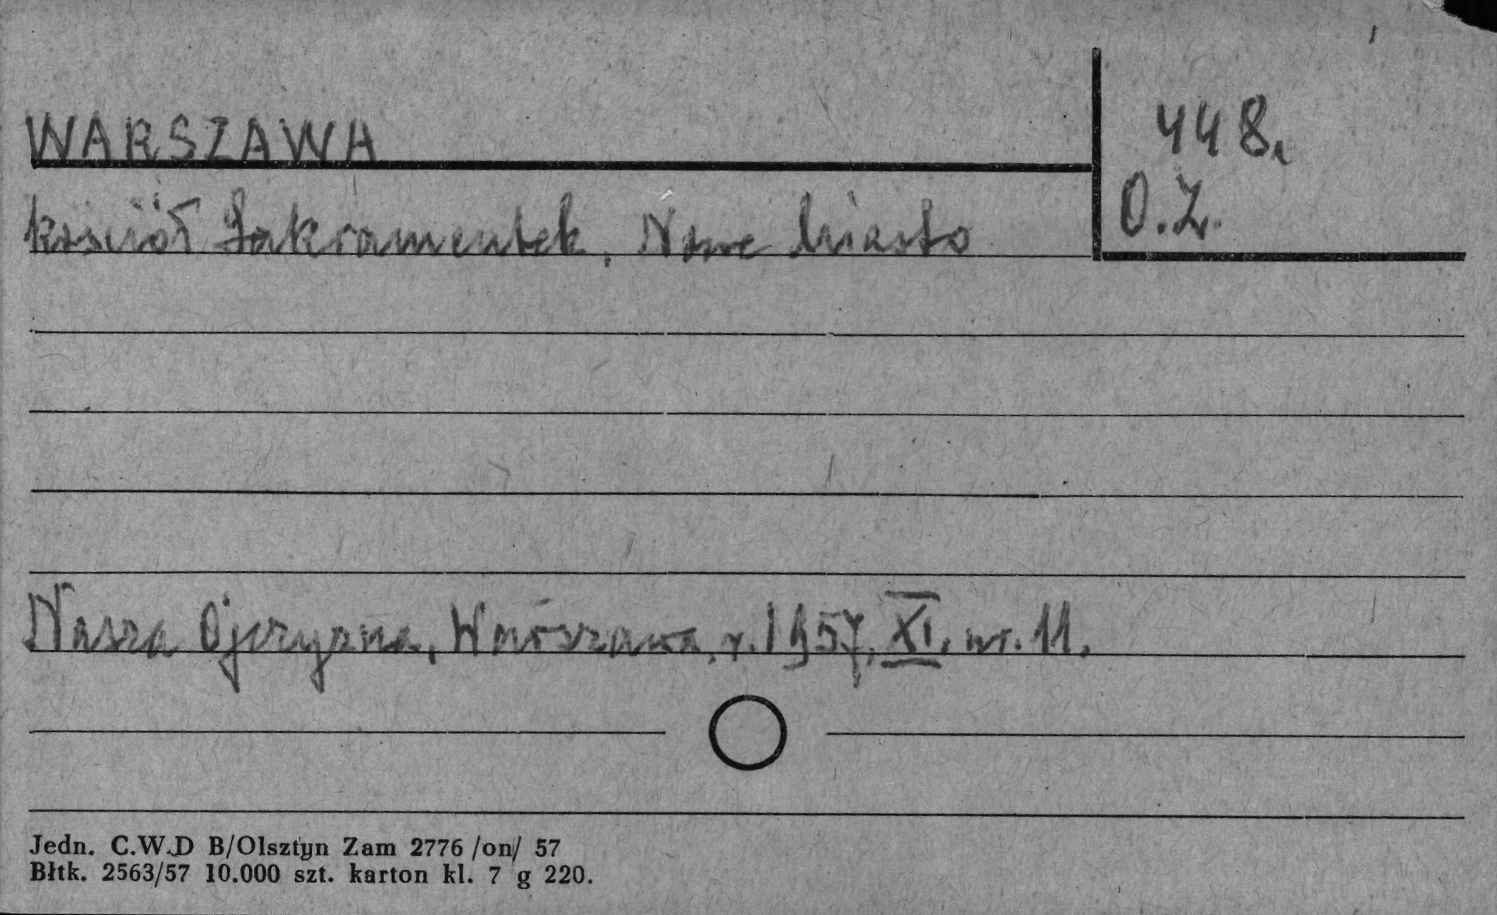 WARSZAWA
448.
kościół Sakramentek, Nowe Miasto
O.Z.
Nasza Ojczyzna, Warszawa, r. 1957, XI, nr. 11.
Jedn. C.W.D B/Olsztyn Zam 2776 /on/ 57
Błtk. 2563/57 10.000 szt. karton kl. 7 g 220.